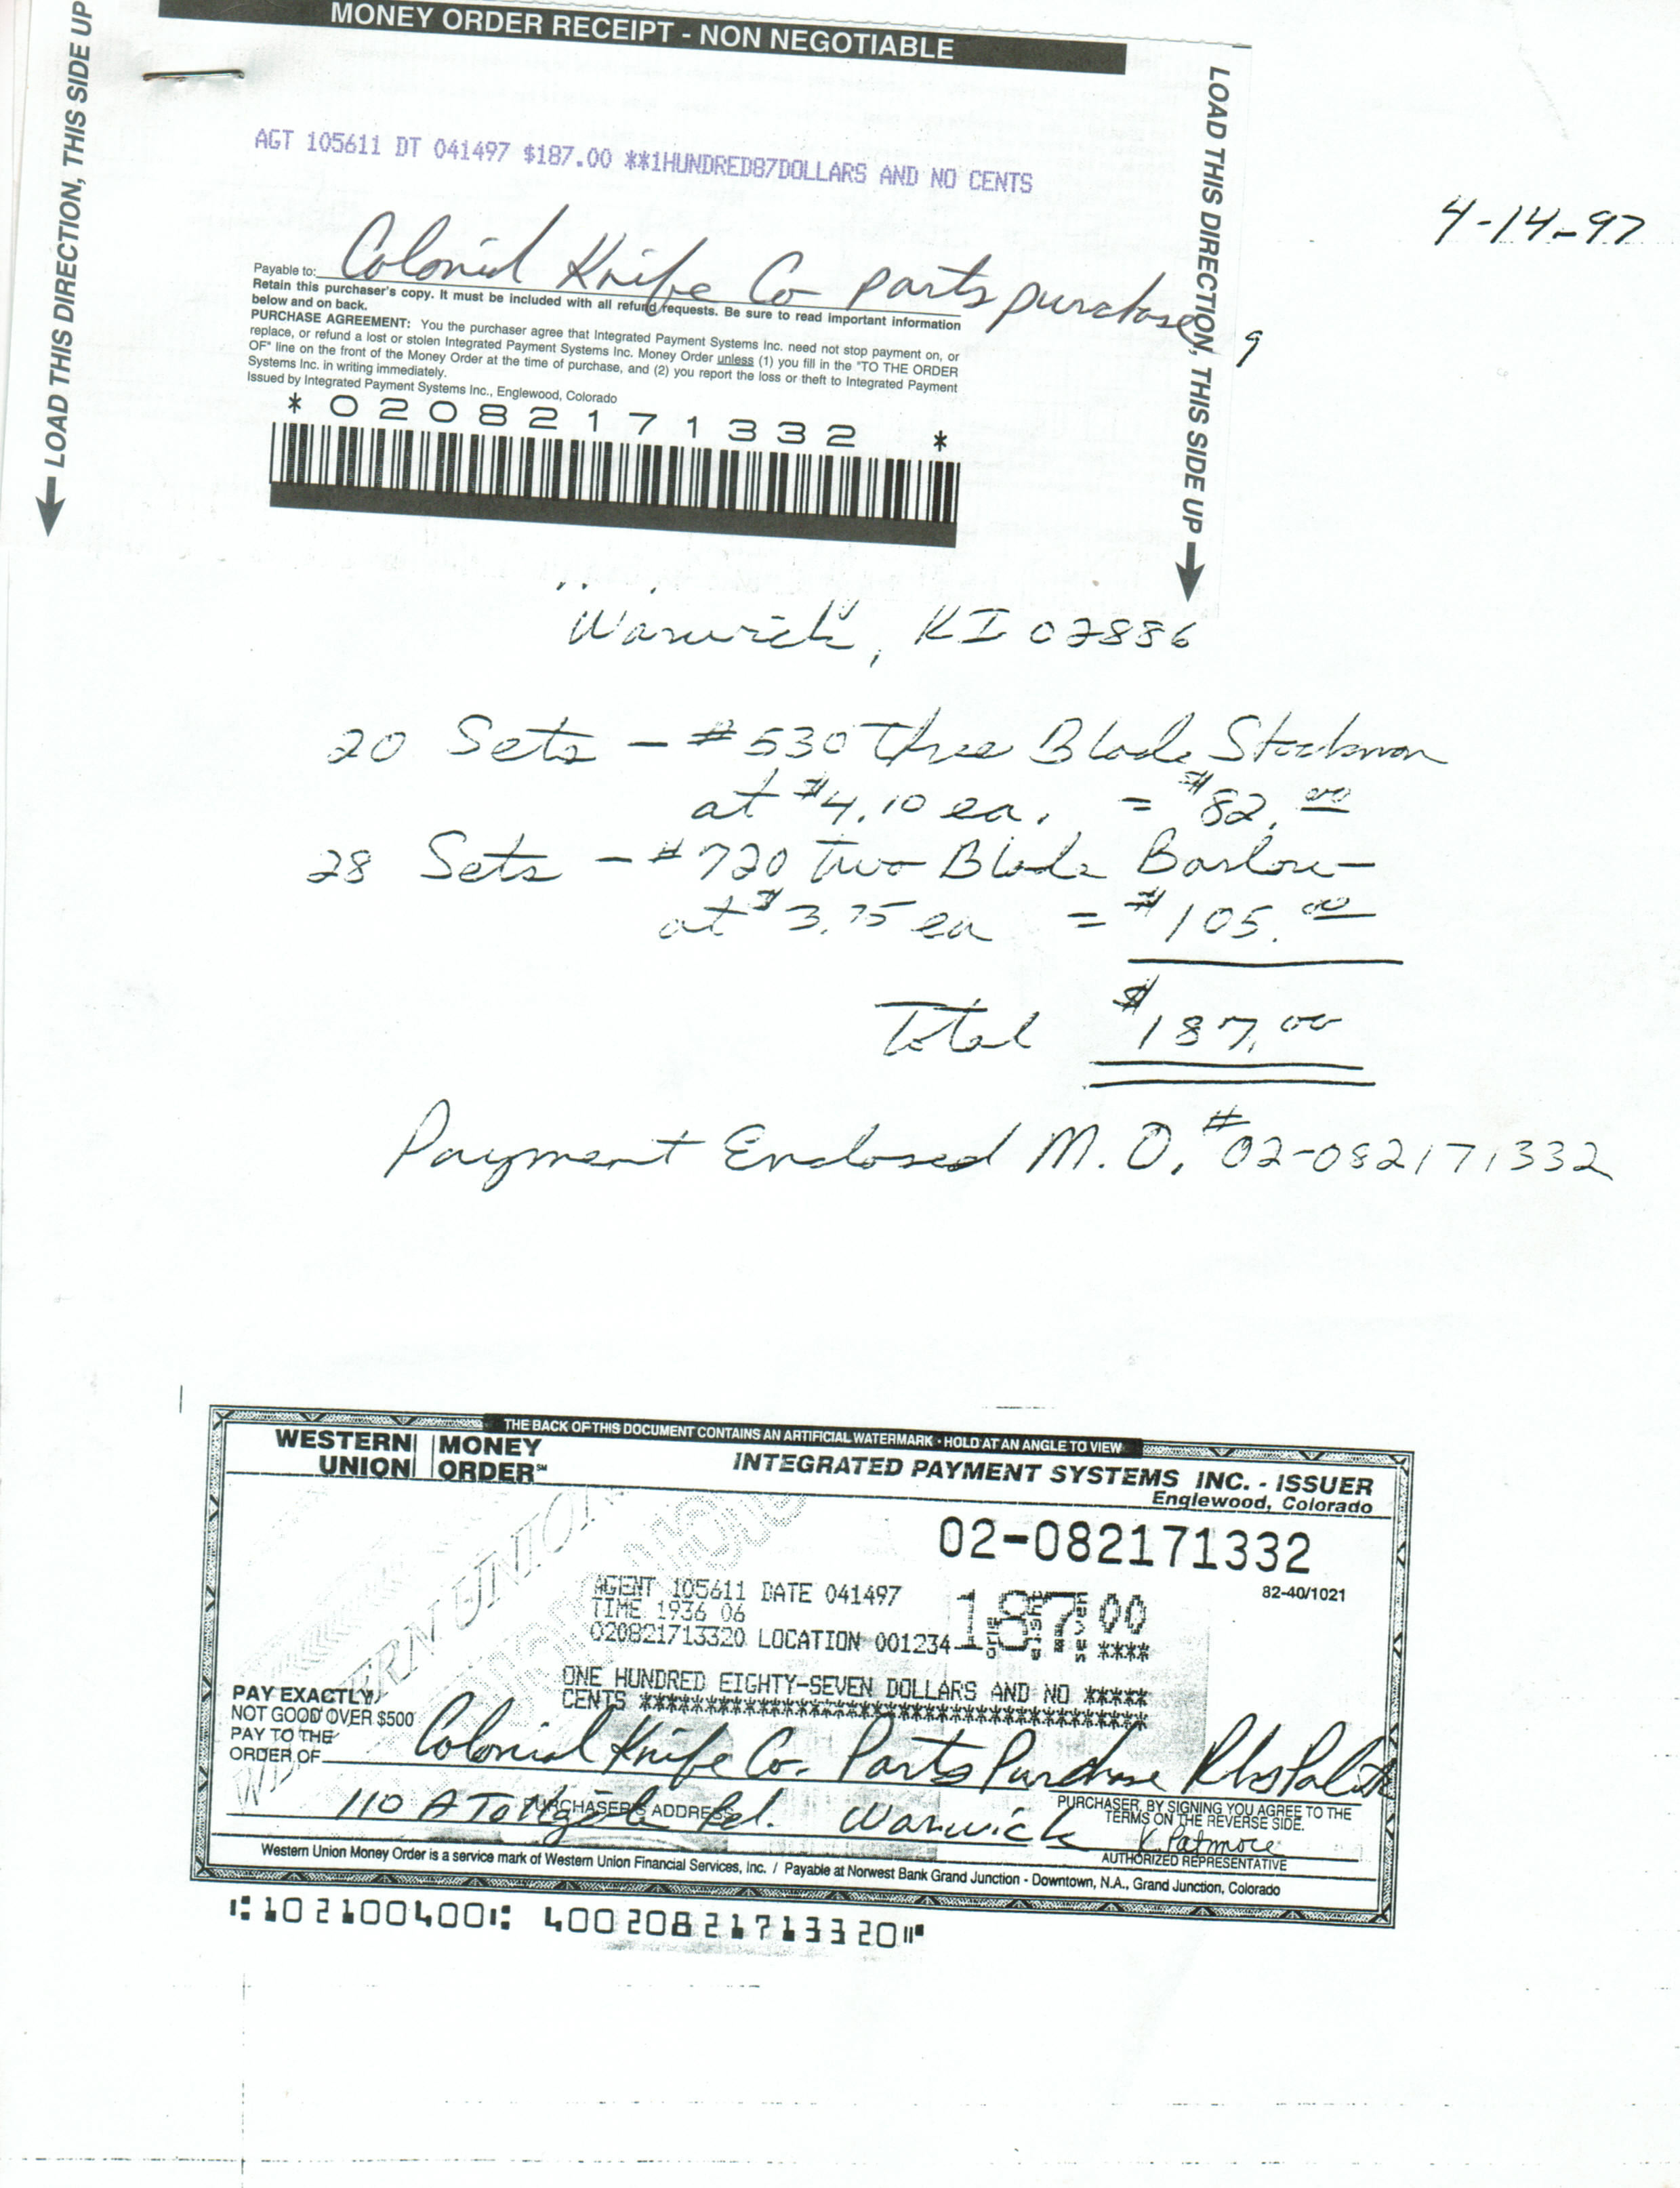 MONEY ORDER RECEIPT - NON NEGOTIABLE
LOAD THIS DIRECTION, THIS SIDE UP
LOAD THIS DIRECTION, THIS SIDE UP
AGT 105611 DT 041497 $187.00 **1HUNDRED87DOLLARS AND NO CENTS
4-14-97
Payable to: Colonial Knife Co parts purchase
Retain this purchaser's copy. It must be included with all refund requests. Be sure to read important information
below and on back.
PURCHASE AGREEMENT: You the purchaser agree that Integrated Payment Systems Inc. need not stop payment on, or
replace, or refund a lost or stolen Integrated Payment Systems Inc. Money Order unless (1) you fill in the "TO THE ORDER
OF" line on the front of the Money Order at the time of purchase, and (2) you report the loss or theft to Integrated Payment
Systems Inc. in writing immediately.
Issued by Integrated Payment Systems Inc., Englewood, Colorado
* 0 2 0 8 2 1 7 1 3 3 2 *
"Warwick", RI 02886
20 Sets - #530 Three Blade Stockman
at $4.10 ea. = $82.00
28 Sets - #720 Two Blade Barlow -
at $3.75 ea = $105.00
Total $187.00
Payment Enclosed M.O. #02-082171332
THE BACK OF THIS DOCUMENT CONTAINS AN ARTIFICIAL WATERMARK · HOLD AT AN ANGLE TO VIEW
WESTERN UNION MONEY ORDER℠
INTEGRATED PAYMENT SYSTEMS INC. - ISSUER
Englewood, Colorado
02-082171332
82-40/1021
AGENT 105611 DATE 041497
TIME 1936 06
020821713320 LOCATION 001234
187 00
****
ONE HUNDRED EIGHTY-SEVEN DOLLARS AND NO *****
CENTS ****************************************
PAY EXACTLY
NOT GOOD OVER $500
PAY TO THE
ORDER OF Colonial Knife Co. Parts Purchase
110 A Rd. Warwick
PURCHASER'S ADDRESS
PURCHASER, BY SIGNING YOU AGREE TO THE
TERMS ON THE REVERSE SIDE.
K Patmore
AUTHORIZED REPRESENTATIVE
Western Union Money Order is a service mark of Western Union Financial Services, Inc. / Payable at Norwest Bank Grand Junction - Downtown, N.A., Grand Junction, Colorado
⑆102100400⑆ 40020821713320⑈